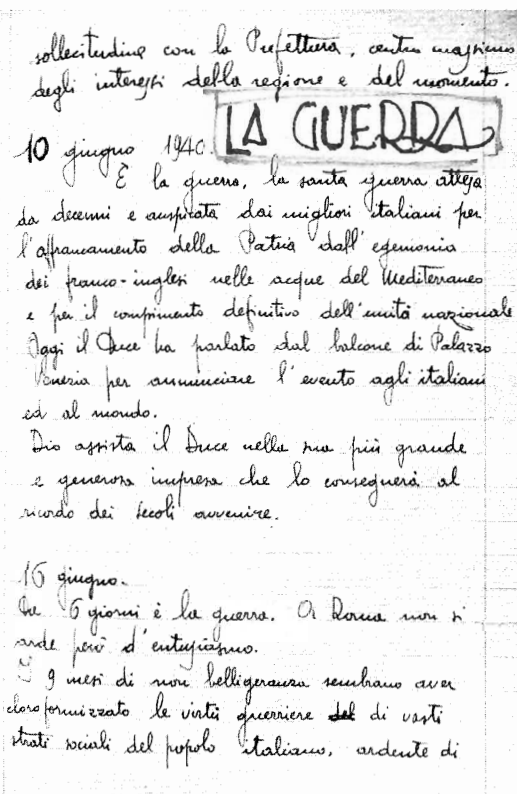 sollecitudine con la Prefettura, centro massimo
degli interessi della regione e del momento.
LA GUERRA
10 giugno 1940.
È la guerra, la santa guerra attesa
da decenni e auspicata dai migliori italiani per
l'affrancamento della Patria dall'egemonia
dei franco-inglesi nelle acque del Mediterraneo
e per il compimento definitivo dell'unità nazionale
Oggi il Duce ha parlato dal balcone di Palazzo
Venezia per annunciare l'evento agli italiani
ed al mondo.
Dio assista il Duce nella sua più grande
e generosa impresa che lo consegnerà al
ricordo dei secoli avvenire.
16 giugno.
Da 6 giorni è la guerra. A Roma non si
arde però d'entusiasmo.
I 9 mesi di non belligeranza sembrano aver
cloroformizzato le virtù guerriere del di vasti
strati sociali del popolo italiano, ardente di